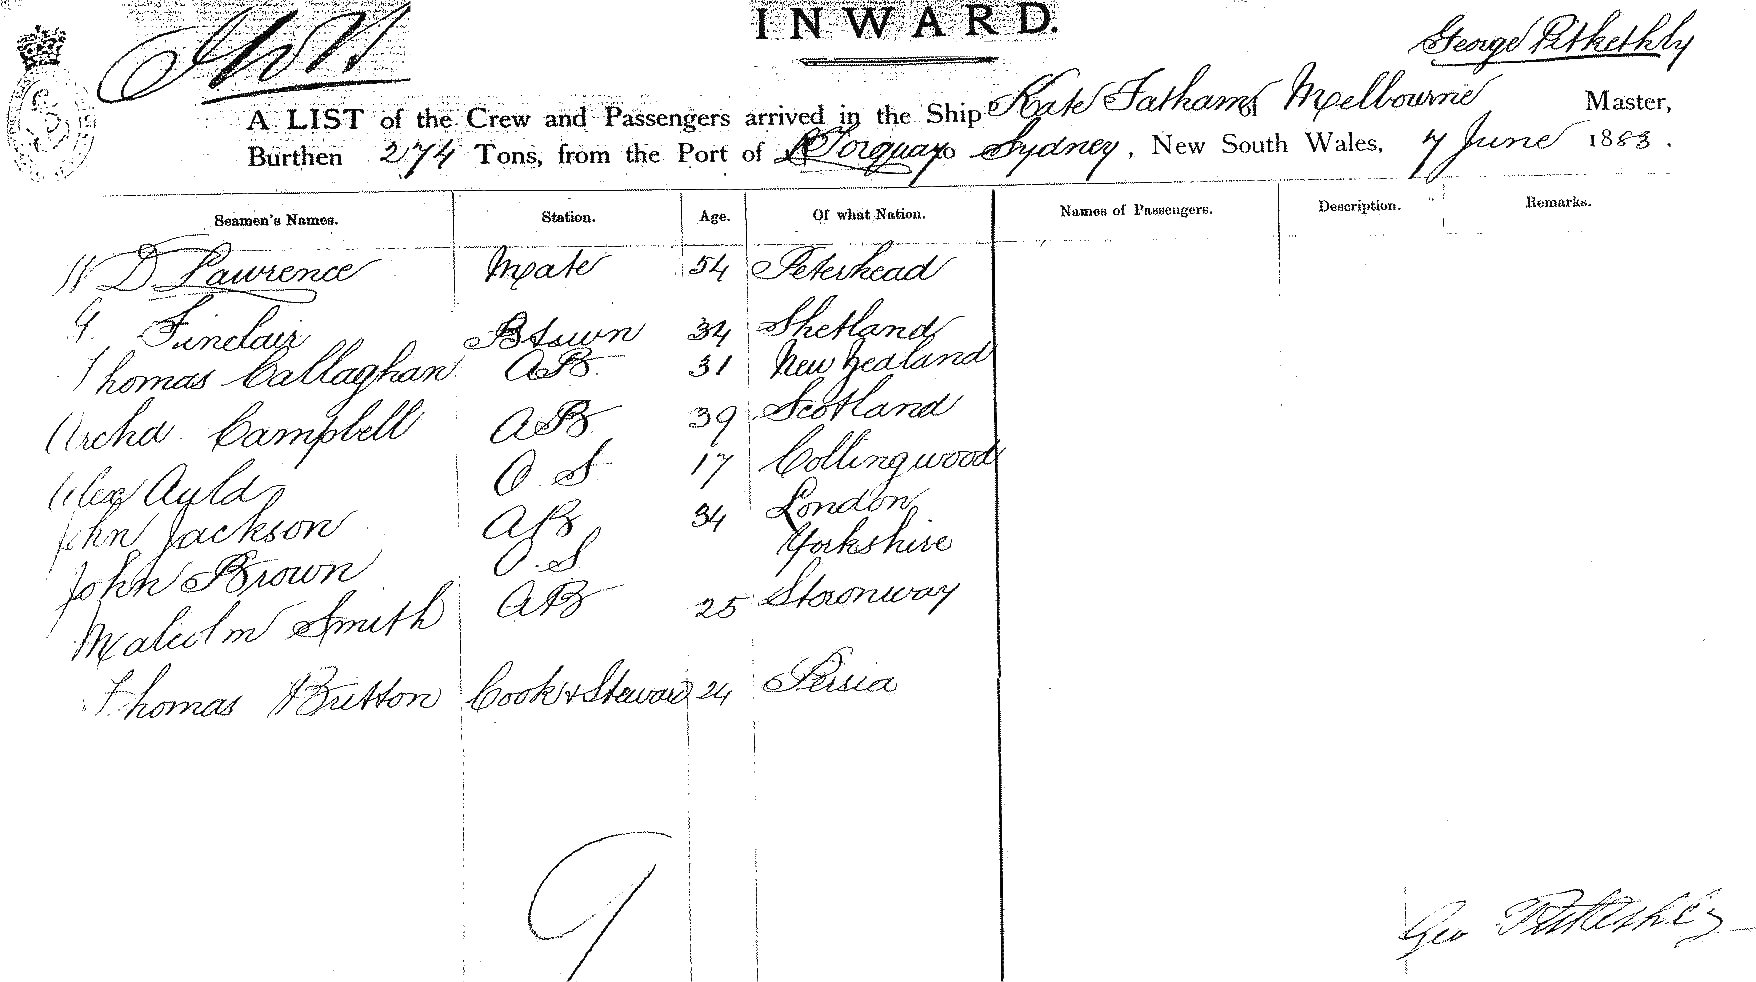 INWARD.
George Pitkethly
A LIST of the Crew and Passengers arrived in the Ship Kate Tatham of Melbourne Master,
Burthen 274 Tons, from the Port of Torquay to Sydney, New South Wales, 7 June 1883.
Seamen's Names. Station. Age. Of what Nation. Names of Passengers. Description. Remarks.
W D Lawrence Mate 54 Peterhead
G. Sinclair Btswn 34 Shetland
Thomas Callaghan AB. 31 New Zealand
Archd. Campbell AB 39 Scotland
Alex Auld O S 17 Collingwood
John Jackson AB 34 London
John Brown O S Yorkshire
Malcolm Smith AB 25 Storonway
Thomas Britton Cook & Steward 24 Persia
9
Geo Pitkethly